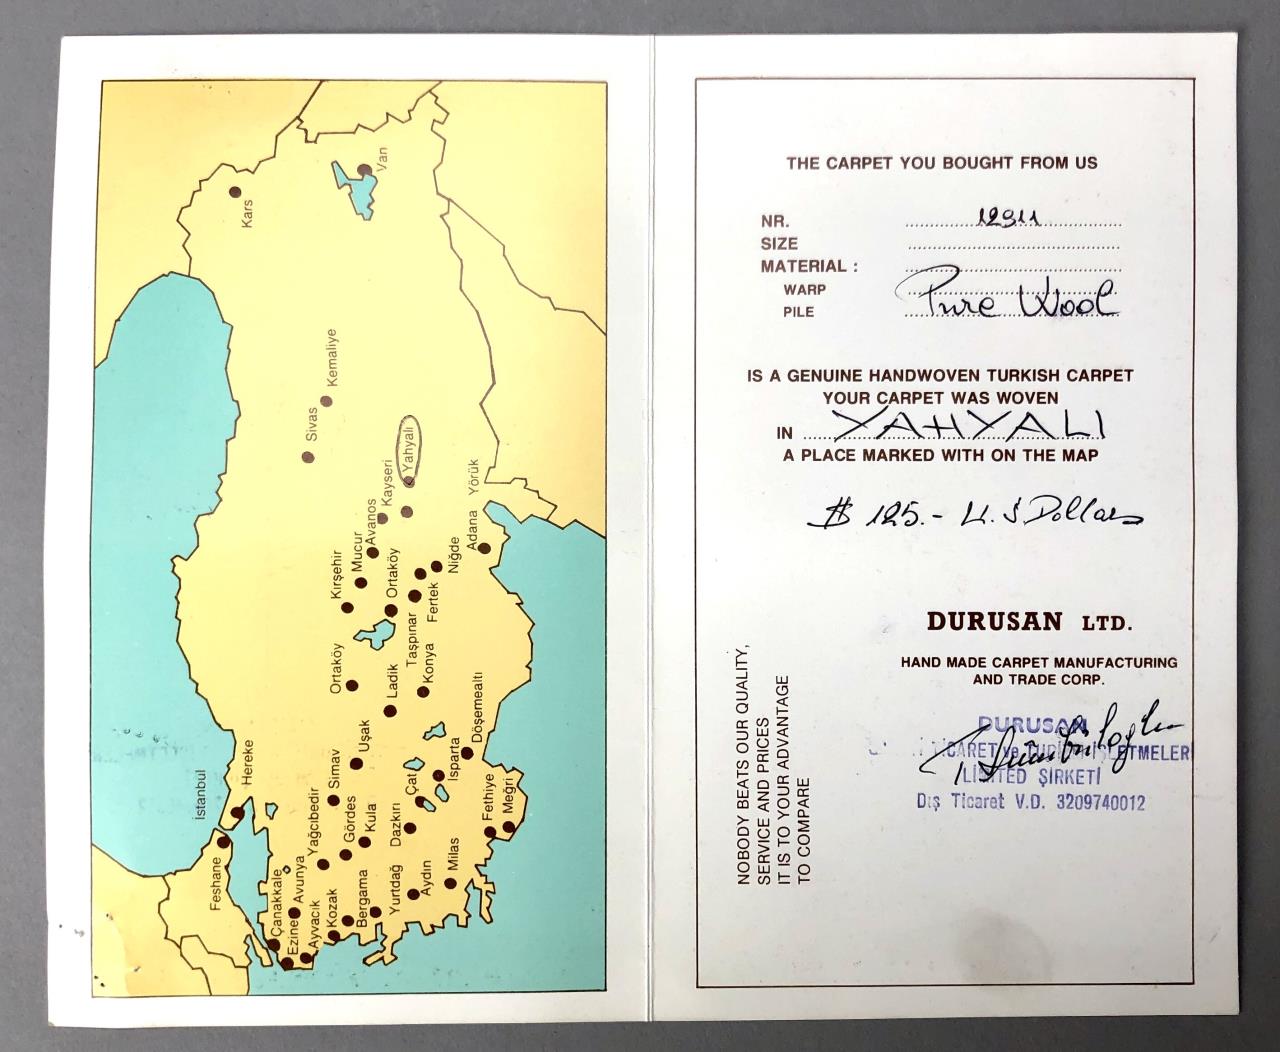 Van
Kars
Kemaliye
Sivas
Yahyalı
Kayseri
Yörük
Avanos
Adana
Mucur
Kırşehir
Ortaköy
Niğde
Fertek
Taşpınar
Konya
Ortaköy
Ladik
Döşemealtı
Uşak
Isparta
Hereke
Simav
Çat
İstanbul
Fethiye
Meğri
Yağcıbedir
Gördes
Kula
Dazkırı
Milas
Feshane
Avunya
Çanakkale
Kozak
Bergama
Yurtdağ
Aydın
Ezine
Ayvacık
THE CARPET YOU BOUGHT FROM US
NR. 12911
SIZE
MATERIAL :
WARP
PILE Pure Wool
IS A GENUINE HANDWOVEN TURKISH CARPET
YOUR CARPET WAS WOVEN
IN YAHYALI
A PLACE MARKED WITH ON THE MAP
$ 125.- U.S Dollars
DURUSAN LTD.
HAND MADE CARPET MANUFACTURING
AND TRADE CORP.
NOBODY BEATS OUR QUALITY,
SERVICE AND PRICES
IT IS TO YOUR ADVANTAGE
TO COMPARE
DURUSAN
TİCARET ve TURİZM İŞLETMELERİ
LİMİTED ŞİRKETİ
Dış Ticaret V.D. 3209740012